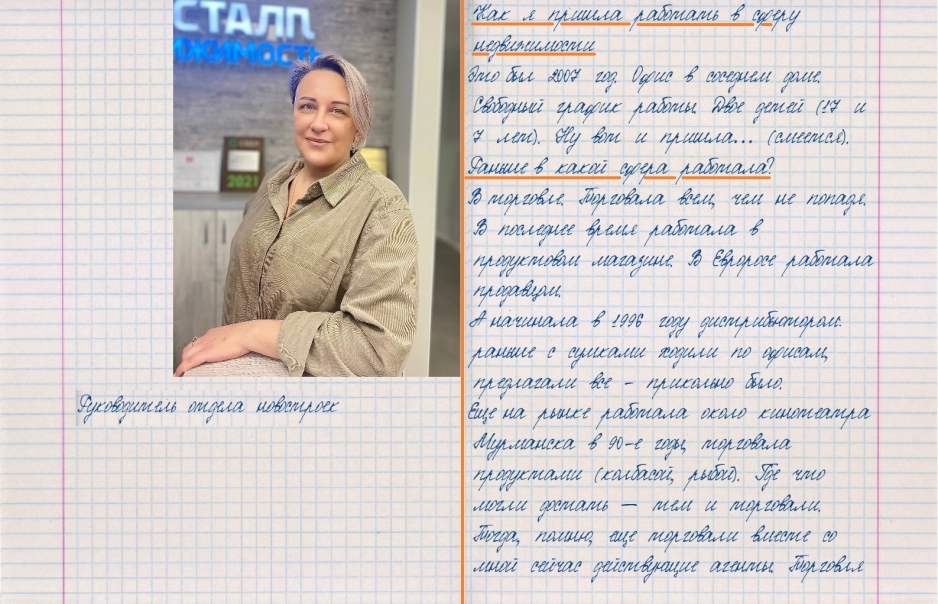 СТАЛЛ
ИЖИМОСТЬ
2021
Руководитель отдела новостроек
Как я пришла работать в сферу
недвижимости
Это был 2007 год. Офис в соседнем доме.
Свободный график работы. Двое детей (17 и
7 лет). Ну вот и пришла... (смеется).
Раньше в какой сфера работала?
В торговле. Торговала всем, чем не попадя.
В последнее время работала в
продуктовом магазине. В Евроросе работала
продавцом.
А начинала в 1996 году дистрибьютором:
раньше с сумками ходили по офисам,
предлагали все - прикольно было.
Еще на рынке работала около кинотеатра
Мурманска в 90-е годы, торговала
продуктами (колбасой, рыбой). Где что
могли достать — тем и торговали.
Тогда, помню, еще торговали вместе со
мной сейчас действующие агенты. Торговля